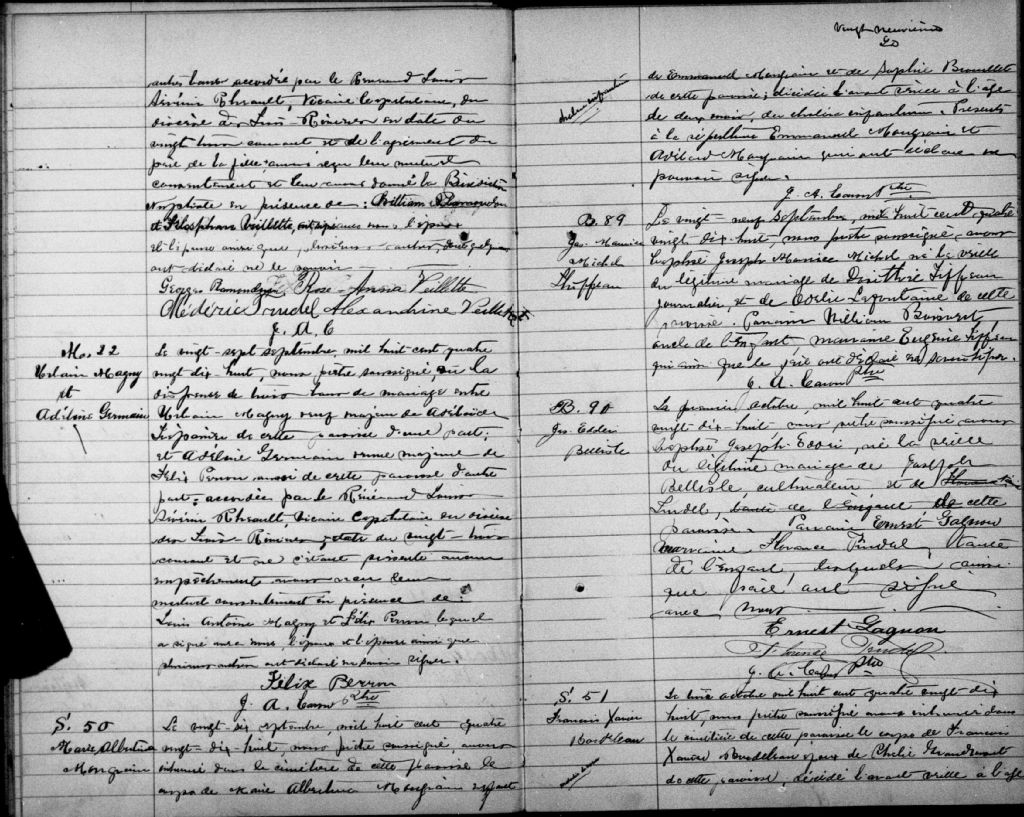 autres bans accordée par le Révérend Louis
Sévérin Rheault, Vicaire Capitulaire, du
diocèse des Trois-Rivières en date du
vingt trois courant et de l'agrément du
père de la fille avons reçu leur mutuel
consentement et leur avons donné la Bénédiction
nuptiale en présence de: William
et Télesphore Veillette, soussignés avec l'époux
et l'épouse ainsi que plusieurs autres, dont quelques
ont déclaré ne le savoir
Georges Rose-Anna Veillette
Médéric Trudel Alexandrine Veillette
J. A. C
M. 22
Urbain Magny
et
Adéline Germain
Le vingt-sept septembre, mil huit cent quatre
vingt dix huit, nous prêtre soussigné, vu la
dispense de trois bans de mariage entre
Urbain Magny veuf majeur de Adélaïde
de cette paroisse d'une part;
et Adéline Germain veuve majeure de
Félix Perron aussi de cette paroisse d'autre
part; accordée par le Révérend Louis
Sévérin Rheault, Vicaire Capitulaire du diocèse
des Trois-Rivières en date du vingt-trois
courant et ne s'étant présenté aucun
empêchement avons reçu leur
mutuel consentement en présence de:
Louis Antoine Magny et Félix Perron lequel
a signé avec nous, l'époux et l'épouse ainsi que
plusieurs autres ont déclaré ne savoir signer.
Félix Perron
J. A. Caron Ptre
S. 50
Marie Albertine
Mongrain
Le vingt-dix septembre, mil huit cent quatre
vingt-dix-huit, nous prêtre soussigné, avons
inhumé dans le cimetière de cette paroisse le
corps de Marie Albertine Mongrain enfant
Vingt neuvième
de Emmanuel Mongrain et de Sophie Brouillet
de cette paroisse; décédée l'avant veille à l'âge
de deux mois, du choléra infantum. Présents
à la sépulture Emmanuel Mongrain et
Mongrain qui ont déclaré ne
pouvoir signer.
J. A. Caron Ptre
B. 89
Jos. Maurice
Michel
Thiffeau
Le vingt-neuf septembre, mil huit cent quatre
vingt-dix-huit, nous prêtre soussigné, avons
baptisé Joseph Maurice Michel né la veille
du légitime mariage de Tiffeau
journalier, et de Lafontaine de cette
paroisse. Parrain William Boisvert,
oncle de l'enfant, marraine Eugénie Tiffeau
qui ainsi que le père ont déclaré ne savoir signer.
J. A. Caron Ptre
B. 90
Jos. Eddie
Bellisle
Le premier octobre, mil huit cent quatre
vingt-dix-huit nous prêtre soussigné avons
baptisé Joseph Eddie, né la veille
du légitime mariage de
Bellisle, cultivateur et de
Trudel, tante de l'enfant, de cette
paroisse. Parrain Ernest Gagnon
marraine Florence Trudel, tante
de l'enfant, lesquels ainsi
que père ont signé
avec nous
Ernest Gagnon
Trudel
J. A. Caron Ptre
S. 51
Francois Xavier
Le trois octobre mil huit cent quatre vingt-dix
huit, nous prêtre soussigné avons inhumé dans
le cimetière de cette paroisse le corps de Francois
Xavier époux de
de cette paroisse, décédé l'avant veille à l'âge